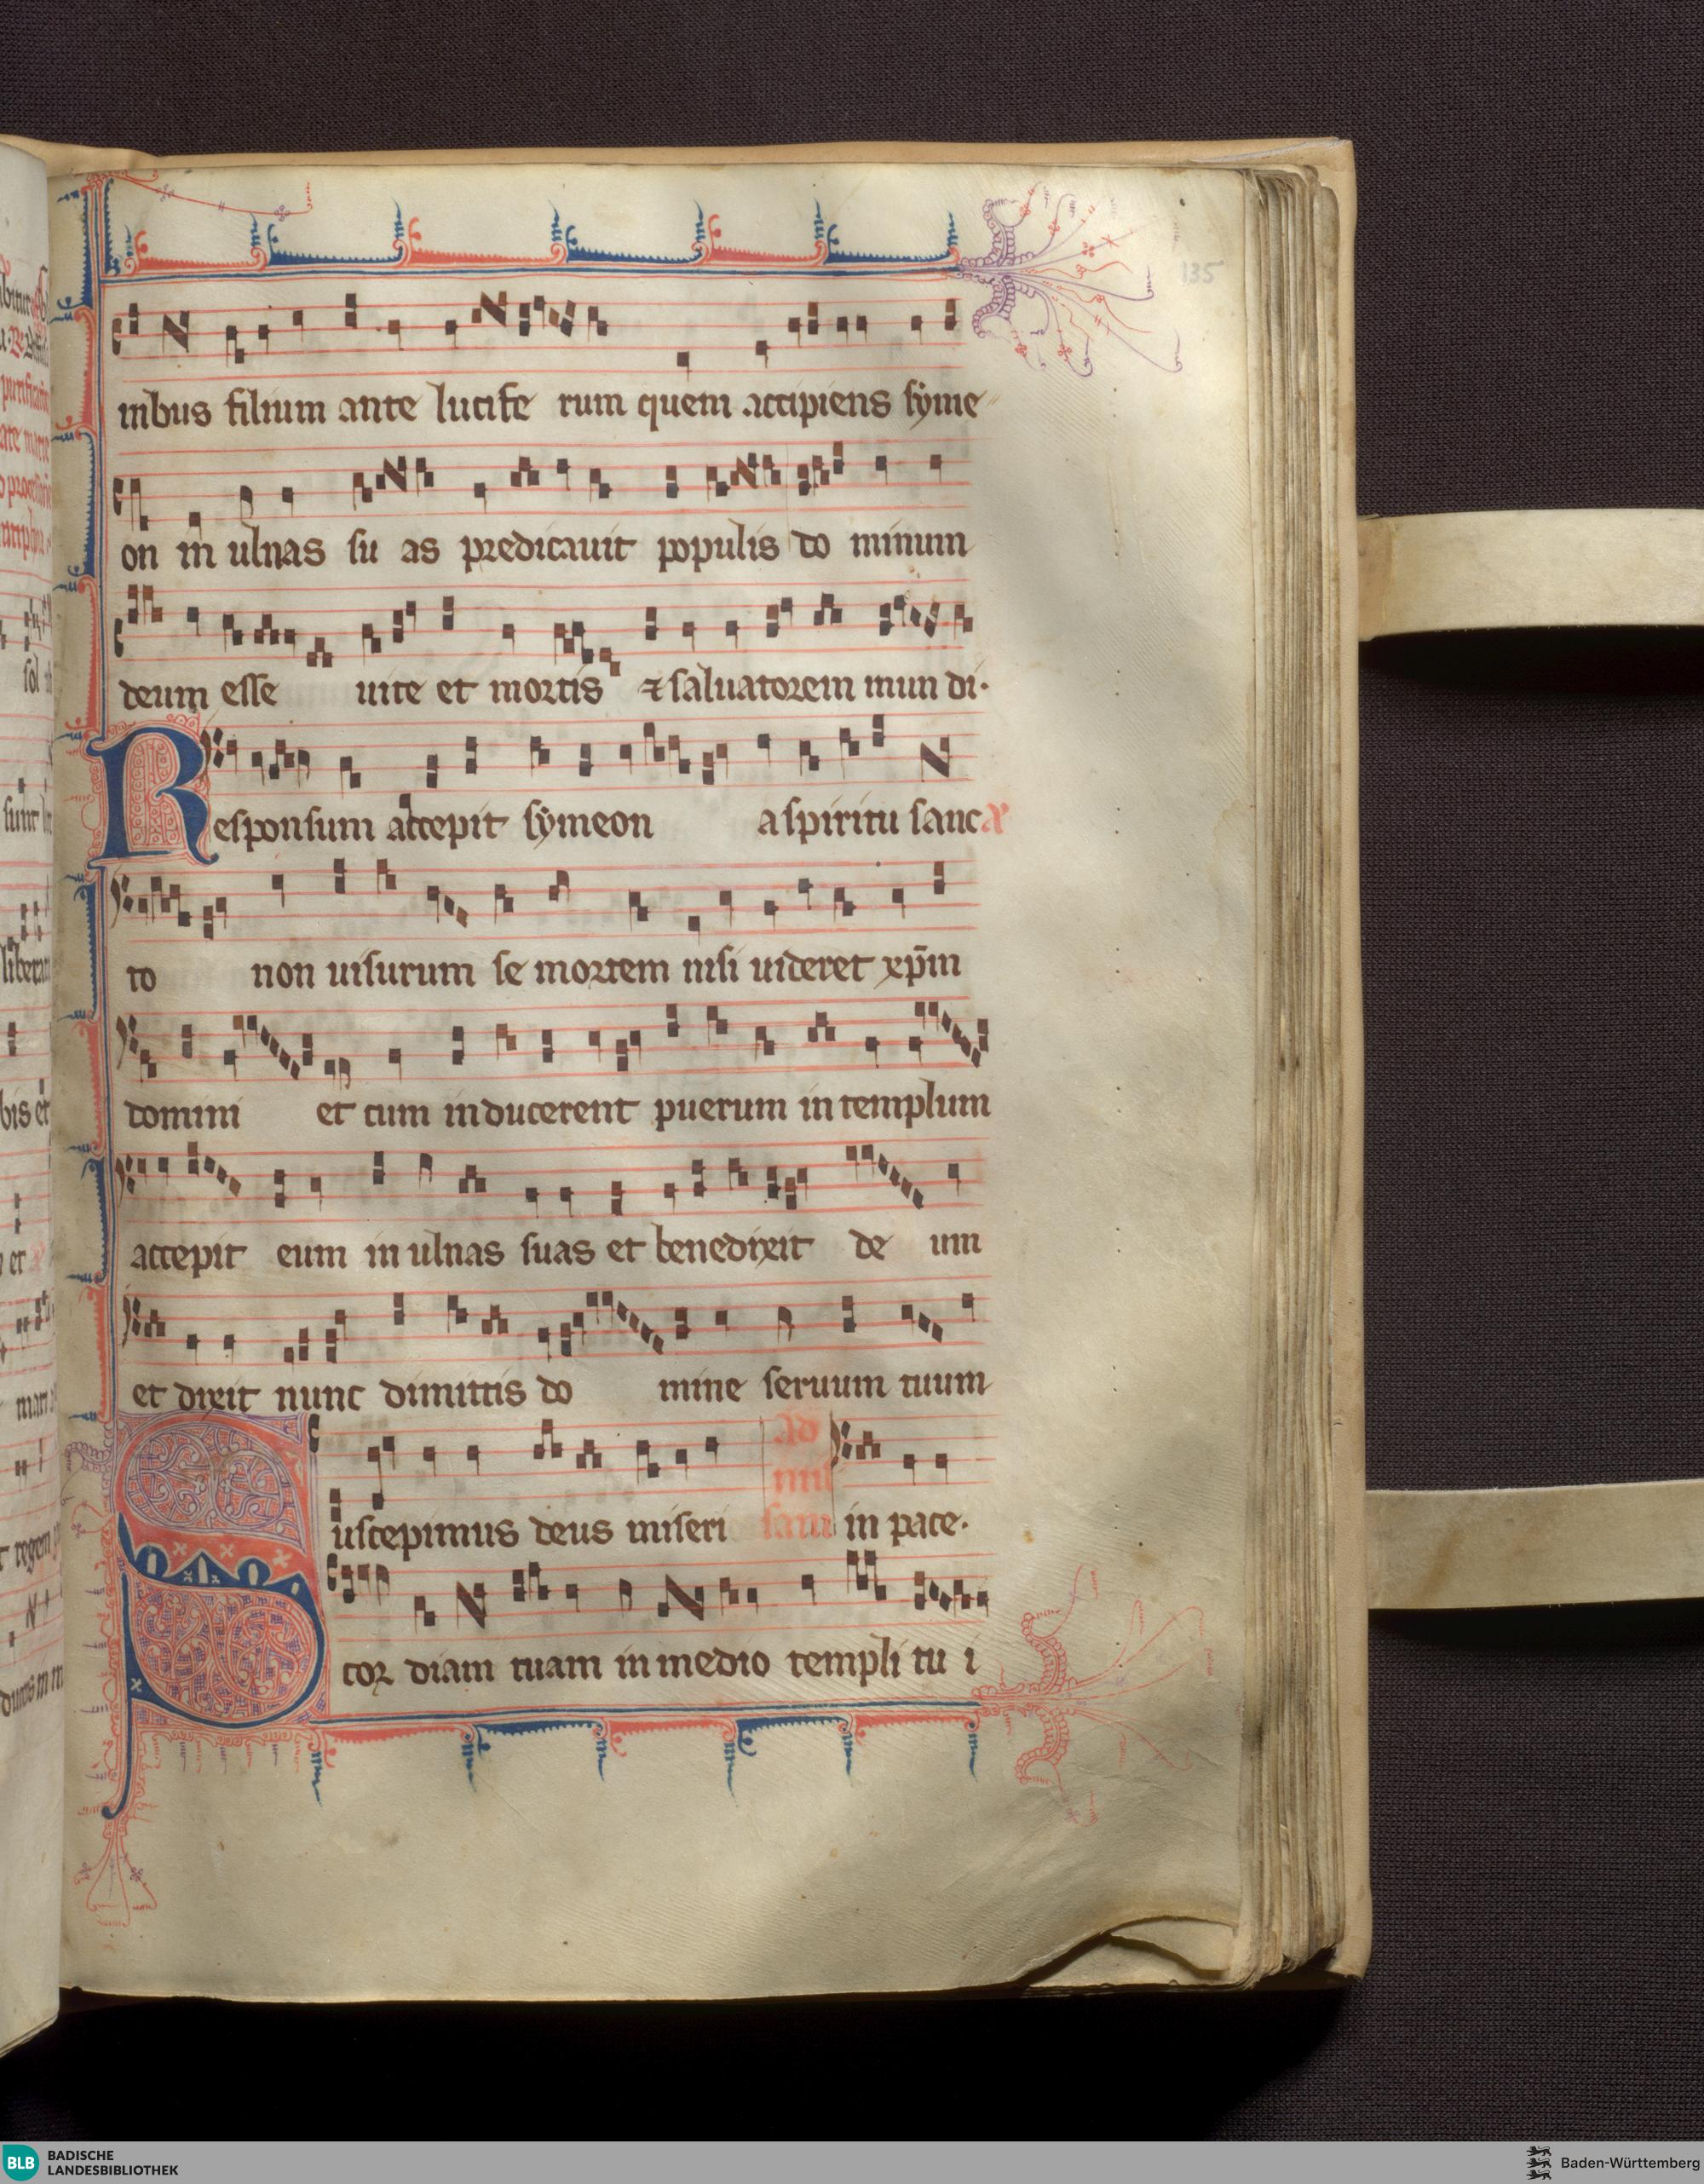 135
nibus filium ante lucife rum quem accipiens syme
on in ulnas su as predicauit populis do minum
deum esse uite et mortis ⁊ saluatorem mun di.
Responsum accepit symeon a spiritu sanc
to non uisurum se mortem nisi uideret xp̄m
domini et cum inducerent puerum in templum
accepit eum in ulnas suas et benedixit de um
et dixit nunc dimittis do mine seruum tuum
Suscepimus deus miseri ad mi ssam in pace.
cor diam tuam in medio templi tu i
BLB BADISCHE
LANDESBIBLIOTHEK
Baden-Württemberg